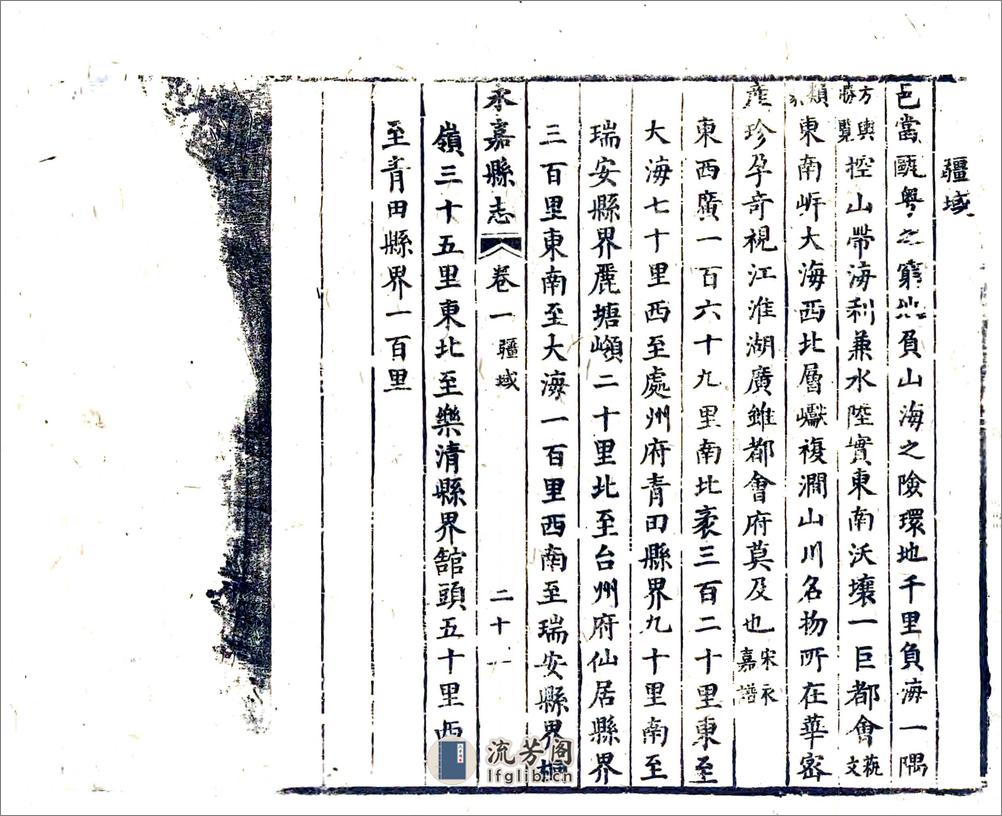 疆域
邑當甌粤之窮 負山海之險環地千里負海一隅
方輿勝覽控山帶海利兼水陸實東南沃壤一巨都會藝文
類 東南岸大海西北層巘複澗山川名物所在華密
產珍孕奇視江淮湖廣雖都會府莫及也宋永嘉譜
東西廣一百六十九里南北袤三百二十里東至
大海七十里西至處州府青田縣界九十里南至
瑞安縣界麗塘嶺二十里北至台州府仙居縣界
三百里東南至大海一百里西南至瑞安縣界
永嘉縣志 卷一 疆域 二十一
嶺三十五里東北至樂清縣界舘頭五十里西
至青田縣界一百里
流芳阁
lfglib.cn